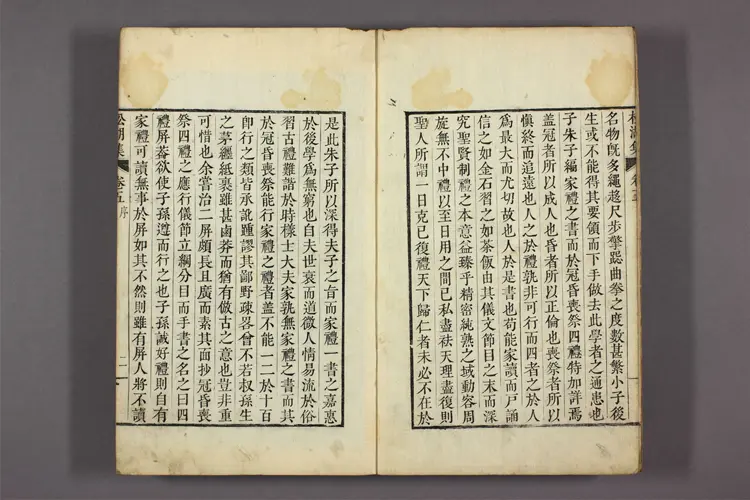 松湖集 卷五
名物旣多繩趍尺步擎跽曲拳之度數甚繁小子後
生或不能得其要領而下手做去此學者之通患也
子朱子編家禮之書而於冠昏喪祭四禮特加詳焉
盖冠者所以成人也昏者所以正倫也喪祭者所以
愼終而追遠也人之於禮孰非可行而四者之於人
爲最大而尤切故也人於是書也苟能家讀而戶誦
信之如金石習之如茶飯由其儀文節目之末而深
究聖賢制禮之本意益臻乎精密純熟之域動容周
旋無不中禮以至日用之間已私盡祛天理盡復則
聖人所謂一日克己復禮天下歸仁者未必不在於
是此朱子所以深得夫子之旨而家禮一書之嘉惠
於後學爲無窮也自夫世衰而道微人情易流於俗
習古禮難諧於時樣士大夫家孰無家禮之書而其
於冠昏喪祭能行家禮之禮者盖不能一二於十百
卽行之類皆承訛踵謬其鄙野疎畧曾不若叔孫生
之茅纏紙裹雖甚鹵莽而猶有倣古之意也豈非重
可惜也余嘗治二屛頗長且廣而素其面抄冠昏喪
祭四禮之應行儀節立綱分目而手書之名之曰四
禮屛葢欲使子孫遵而行之也子孫誠好禮則自有
家禮可讀無事於屛如其不然則雖有屛人將不讀
松湖集 卷五 序 二